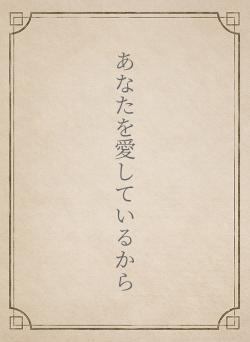 あなたを愛しているから